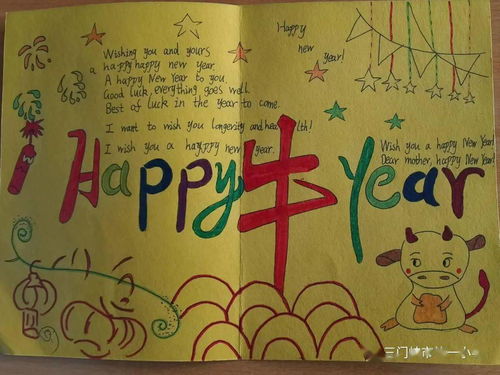 Wishing you and yours
a happy happy new year
A happy New Year to you.
Good luck, everything goes well.
Best of luck in the year to come.
I want to wish you longevity and health!
I wish you a happy new year.
Happy
new
year!
Wish you a happy New Year!
Dear mother, happy New Year!
Happy 牛 Year
三门峡市